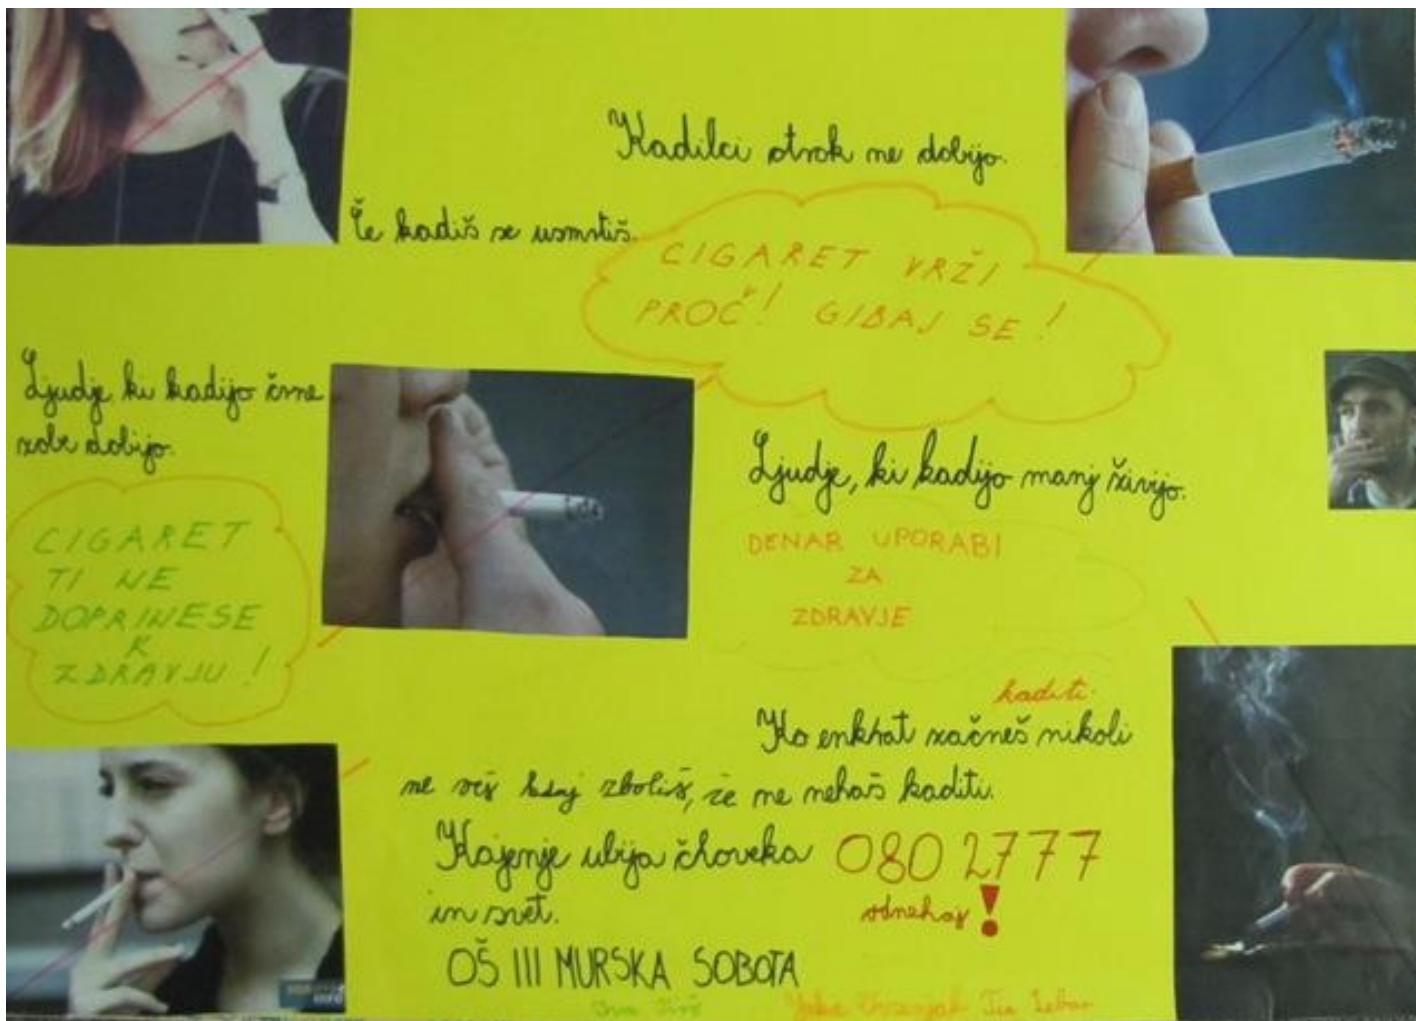 Kadilci otrok ne dobijo.
Če kadiš se usmrtiš.
CIGARET VRŽI
PROČ! GIBAJ SE!
Ljudje, ki kadijo črne
zobe dobijo.
Ljudje, ki kadijo manj živijo.
CIGARET
TI NE
DOPRINESE
K
ZDRAVJU!
DENAR UPORABI
ZA
ZDRAVJE
kaditi
Ko enkrat začneš nikoli
ne veš kdaj zboliš, če ne nehaš kaditi.
Kajenje ubija človeka
in svet.
080 2777
odnehaj!
OŠ III MURSKA SOBOTA
Tia Lebar